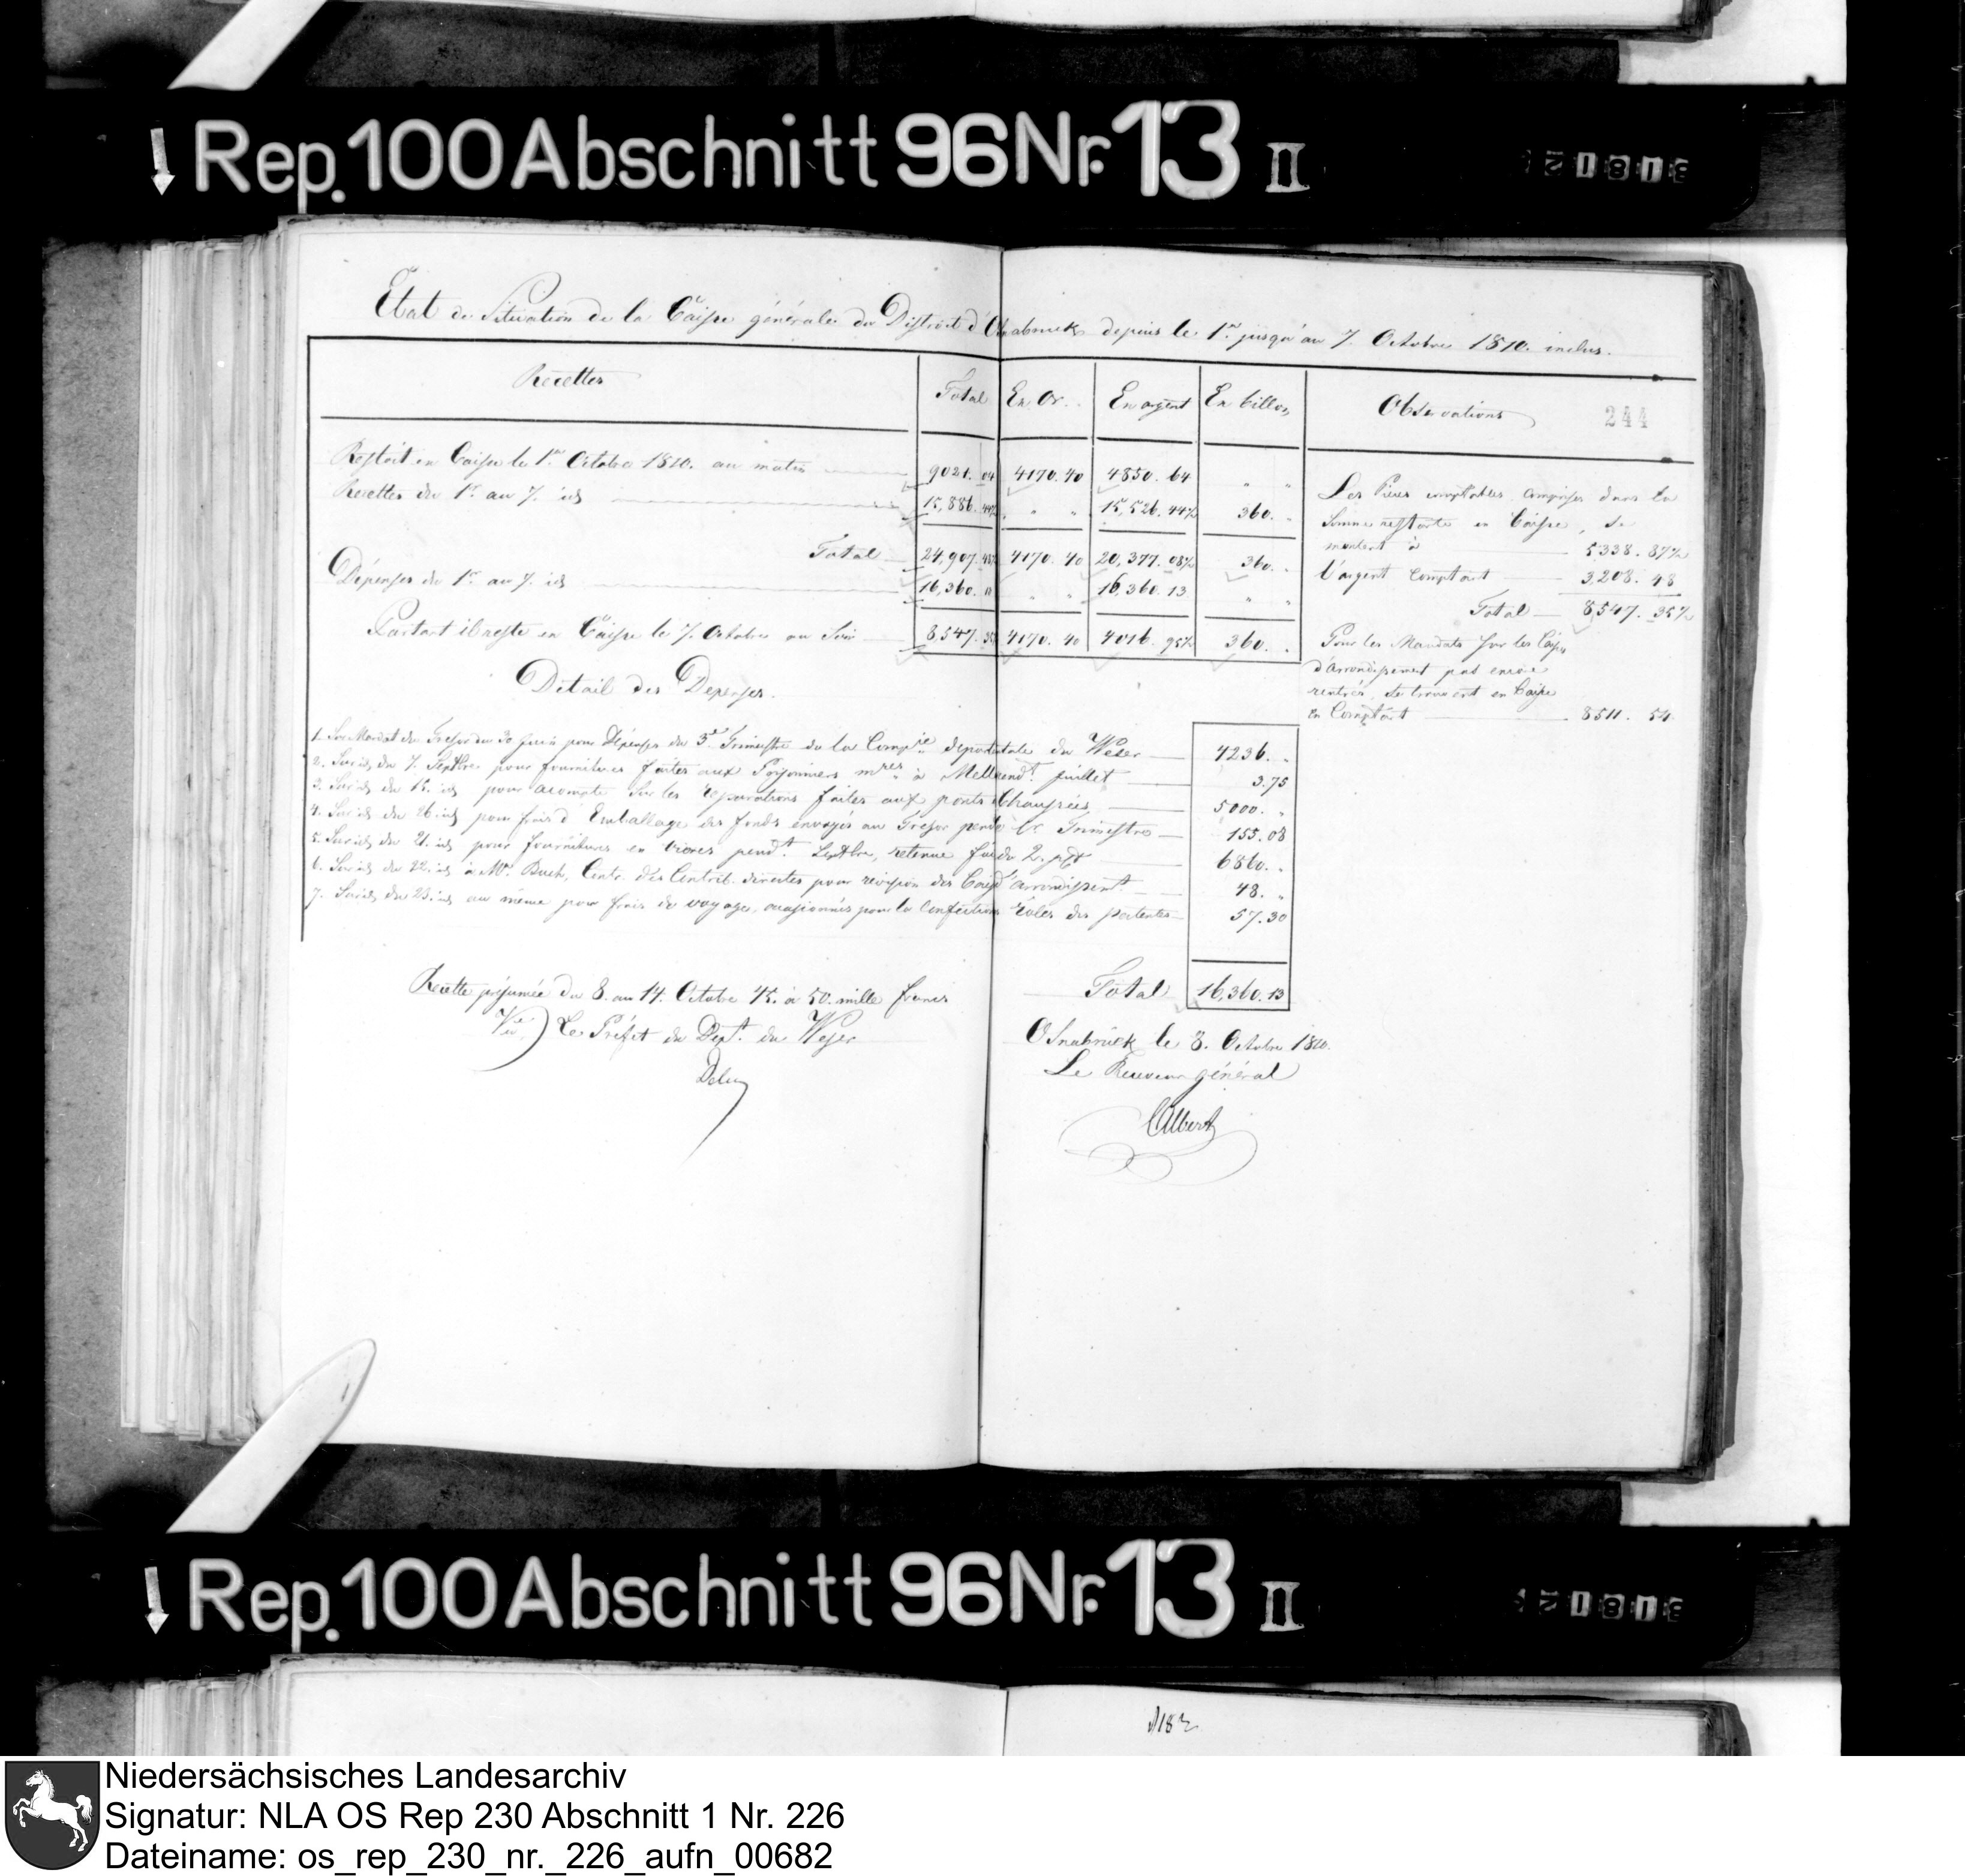 Rep. 100 Abschnitt 96 Nr. 13 II
Etat de Situation de la Caisse générale du District d'Osnabruck depuis le 1er jusqu'au 7. Octobre 1810. inclus.
Recettes Total En Or. En argent En billon Observations 244
Restoit en Caisse le 1er Octobre 1810. au matin 9021. 04 4170. 40 4850. 64 " "
Recettes du 1er au 7. id 15,886. 44½ " " 15,526. 44½ 360. "
Total 24,907. 48½ 4170. 40 20,377. 08½ 360. "
Dépenses du 1er au 7. id 16,360. 13 " " 16,360. 13 " "
Partant il reste en Caisse le 7. Octobre au Soir 8,547. 35½ 4170. 40 4016. 95½ 360. "
Les Pièces comptables comprises dans la
Somme restante en Caisse, se
montent à 5338. 87½
L'argent comptant 3,208. 48
Total 8,547. 35½
Pour les Mandats sur les Caisses
d'arrondissement pas encore
rentrés, se trouvent en Caisse
en Comptant 8511. 54.
Détail des Dépenses.
1. Sur Mandat du Trésor du 30 Juin pour Dépenses du 3e Trimestre de la Compie départtale du Weser 4236. "
2. Sur id, du 7. Septbre pour fournitures faites aux Prisonniers mres à Melle pendt. juillet 3.75
3. Sur id du 15. id pour acompte sur les réparations faites aux ponts & chaussées 5000. "
4. Sur id du 26. id pour frais d'Emballage des fonds envoyés au Trésor pendt le Trimestre 155.08
5. Sur id du 21. id pour fournitures en vivres pendt. Septbre, retenue faite de 2. pct 6860. "
6. Sur id du 22. id à Mr. Buch, Contr. des Contrib. directes pour révision des Caisses d'arrondissemt 48. "
7. Sur id du 23. id au même pour frais de voyages, occasionnés pour la Confection rôles des patentes 57. 30
Total 16,360. 13
Recette présumée du 8. au 14. Octobre 45. à 50. mille francs
Vu) Le Préfet du Dept. du Weser
Delius
Osnabrück le 8. Octobre 1810.
Le Receveur général
CAlbert
Rep. 100 Abschnitt 96 Nr. 13 II
Niedersächsisches Landesarchiv
Signatur: NLA OS Rep 230 Abschnitt 1 Nr. 226
Dateiname: os_rep_230_nr._226_aufn_00682